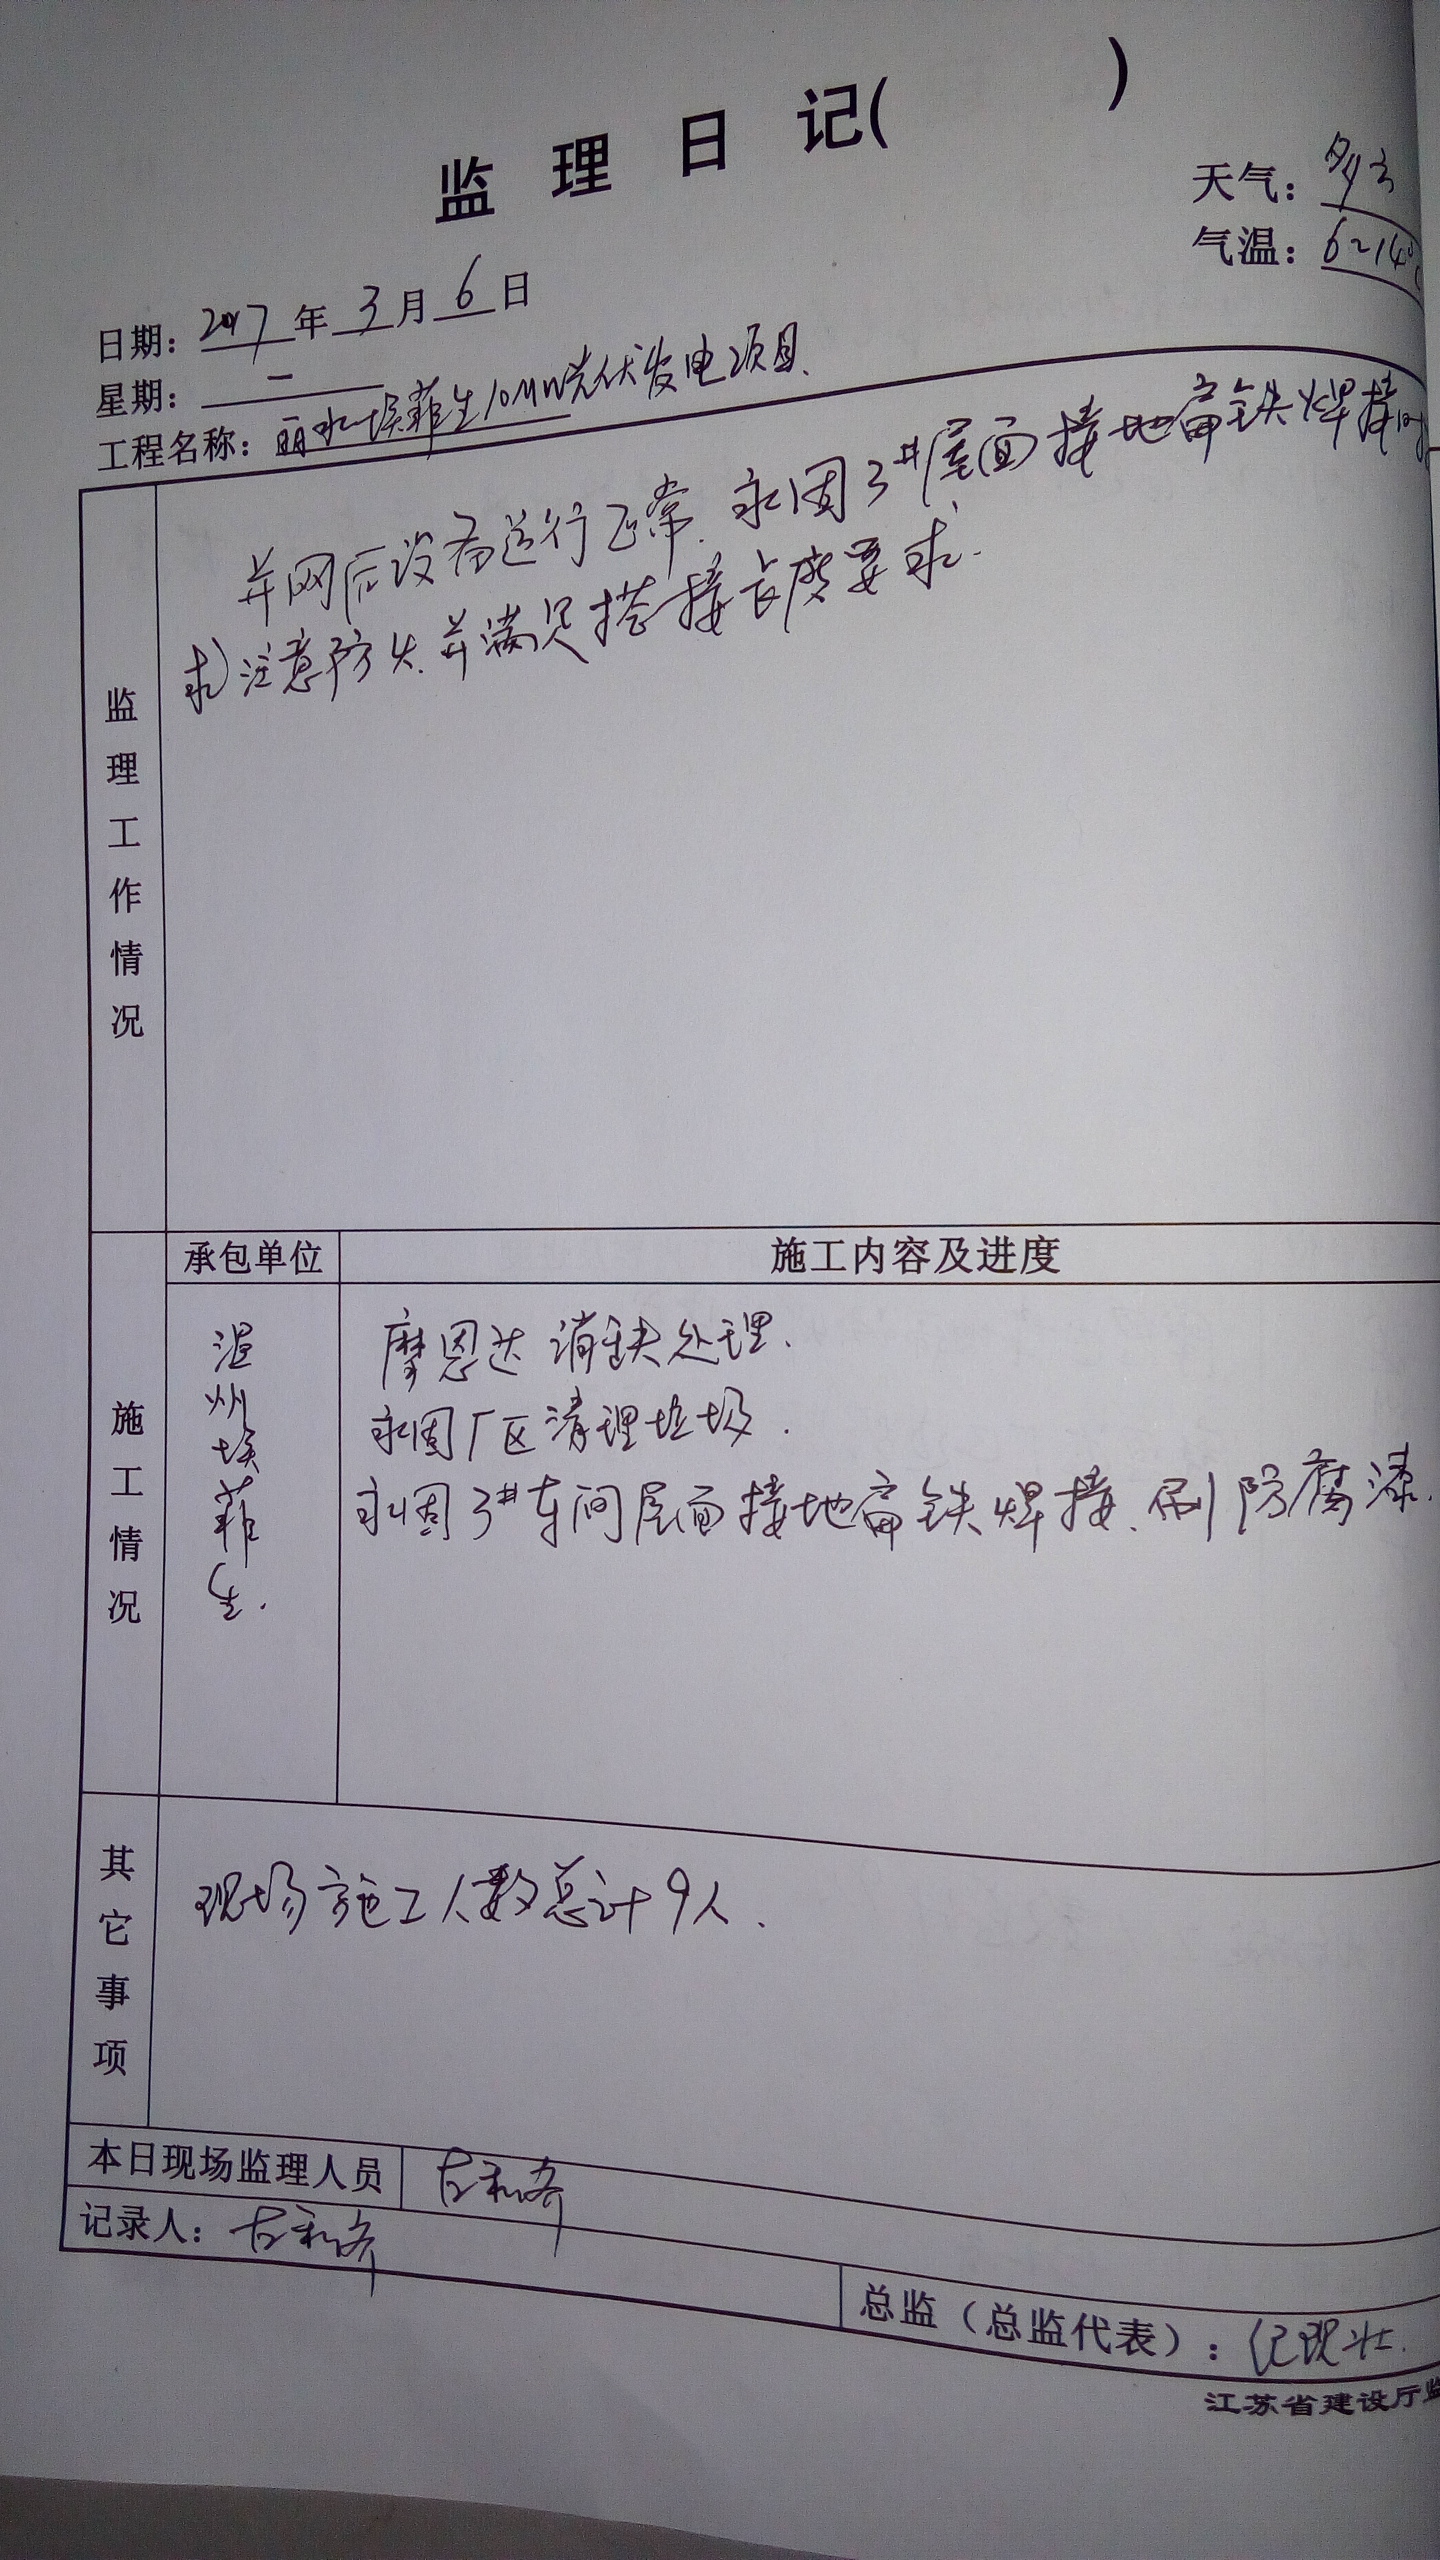 监理日记( )
天气：多云
气温：6~14℃
日期：2017年3月6日
星期：一
工程名称：丽水埃菲生10MW光伏发电项目.
监理工作情况
并网后设备运行正常.永固3#屋面接地扁铁焊接时
注意防火.并满足搭接长度要求.
施工情况
承包单位
施工内容及进度
温州埃菲生.
摩恩达消缺处理.
永固厂区清理垃圾.
永固3#车间屋面接地扁铁焊接、刷防腐漆.
其它事项
现场施工人数总计9人.
本日现场监理人员
记录人：
总监（总监代表）：
江苏省建设厅监